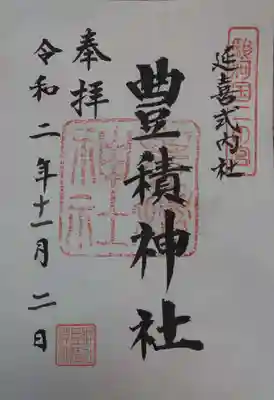 延喜式内社
豊積神社
奉拝
令和二年十一月二日